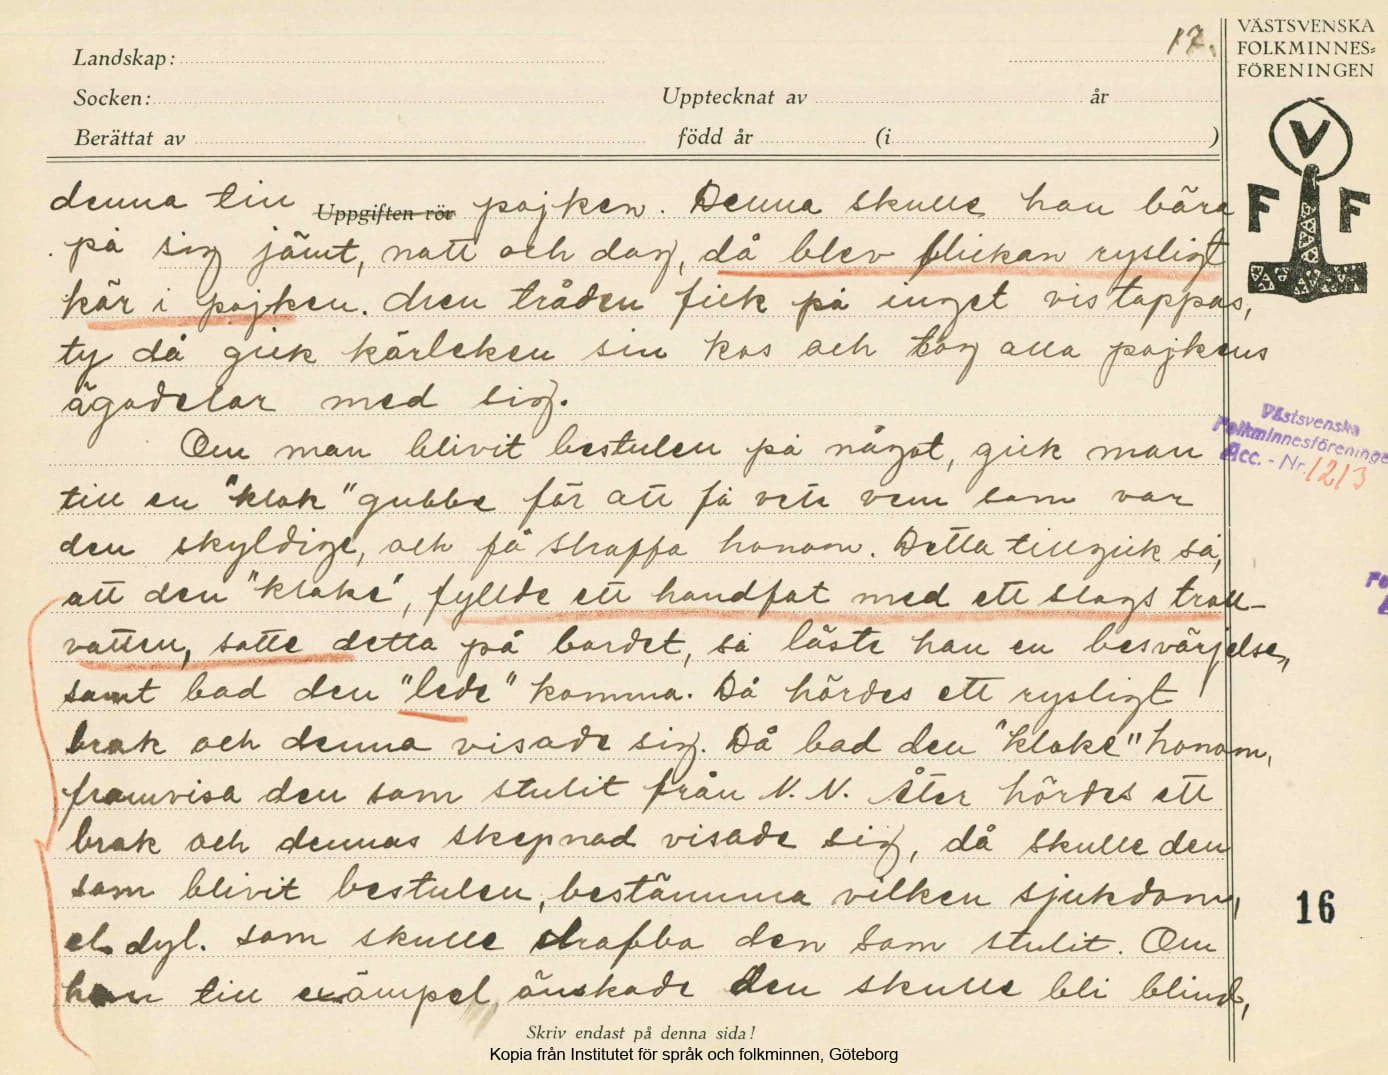 17.
VÄSTSVENSKA
FOLKMINNES=
FÖRENINGEN
Landskap:
Socken:
Upptecknat av
år
Berättat av
född år
(i
)
V
F F
denna till Uppgiften rör pojken. Denna skulle han bära
på sig jämt, natt och dag, då blev flickan rysligt
kär i pojken. Men tråden fick på inget vis tappas,
ty då gick kärleken sin kos och tog alla pojkens
ägodelar med sig.
Om man blivit bestulen på något, gick man
till en "klok" gubbe för att få veta vem som var
den skyldige, och få straffa honom. Detta tillgick så,
att den "kloke", fyllde ett handfat med ett slags troll-
vatten, satte detta på bordet, så läste han en besvärjelse,
samt bad den "lede" komma. Då hördes ett rysligt
brak och denna visade sig. Då bad den "kloke" honom,
framvisa den som stulit från N. N. Åter hördes ett
brak och dennas skepnad visade sig, då skulle den
som blivit bestulen, bestämma vilken sjukdom,
el. dyl. som skulle drabba den som stulit. Om
han till exämpel önskade den skulle bli blind,
Västsvenska
Folkminnesföreningen
Acc. - Nr. 1213
16
Skriv endast på denna sida!
Kopia från Institutet för språk och folkminnen, Göteborg